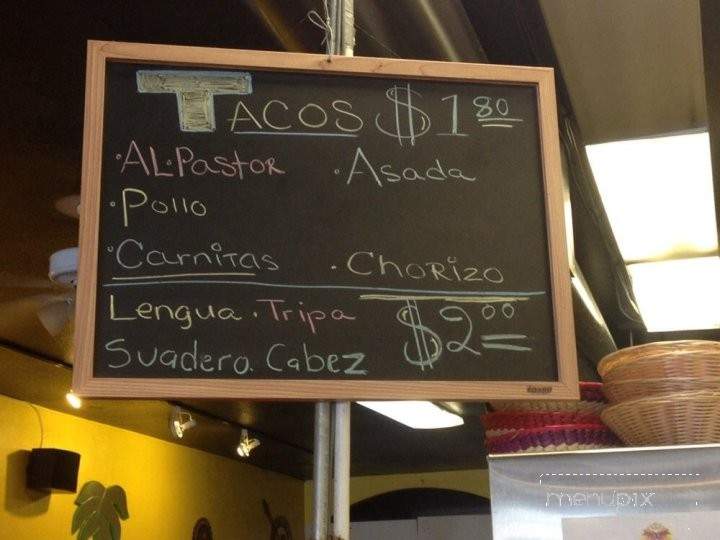 TACOS $1.80
·AL·Pastor ·Asada
·Pollo
·Carnitas ·Chorizo
Lengua·Tripa $2.00
Suadero. Cabez
menupix